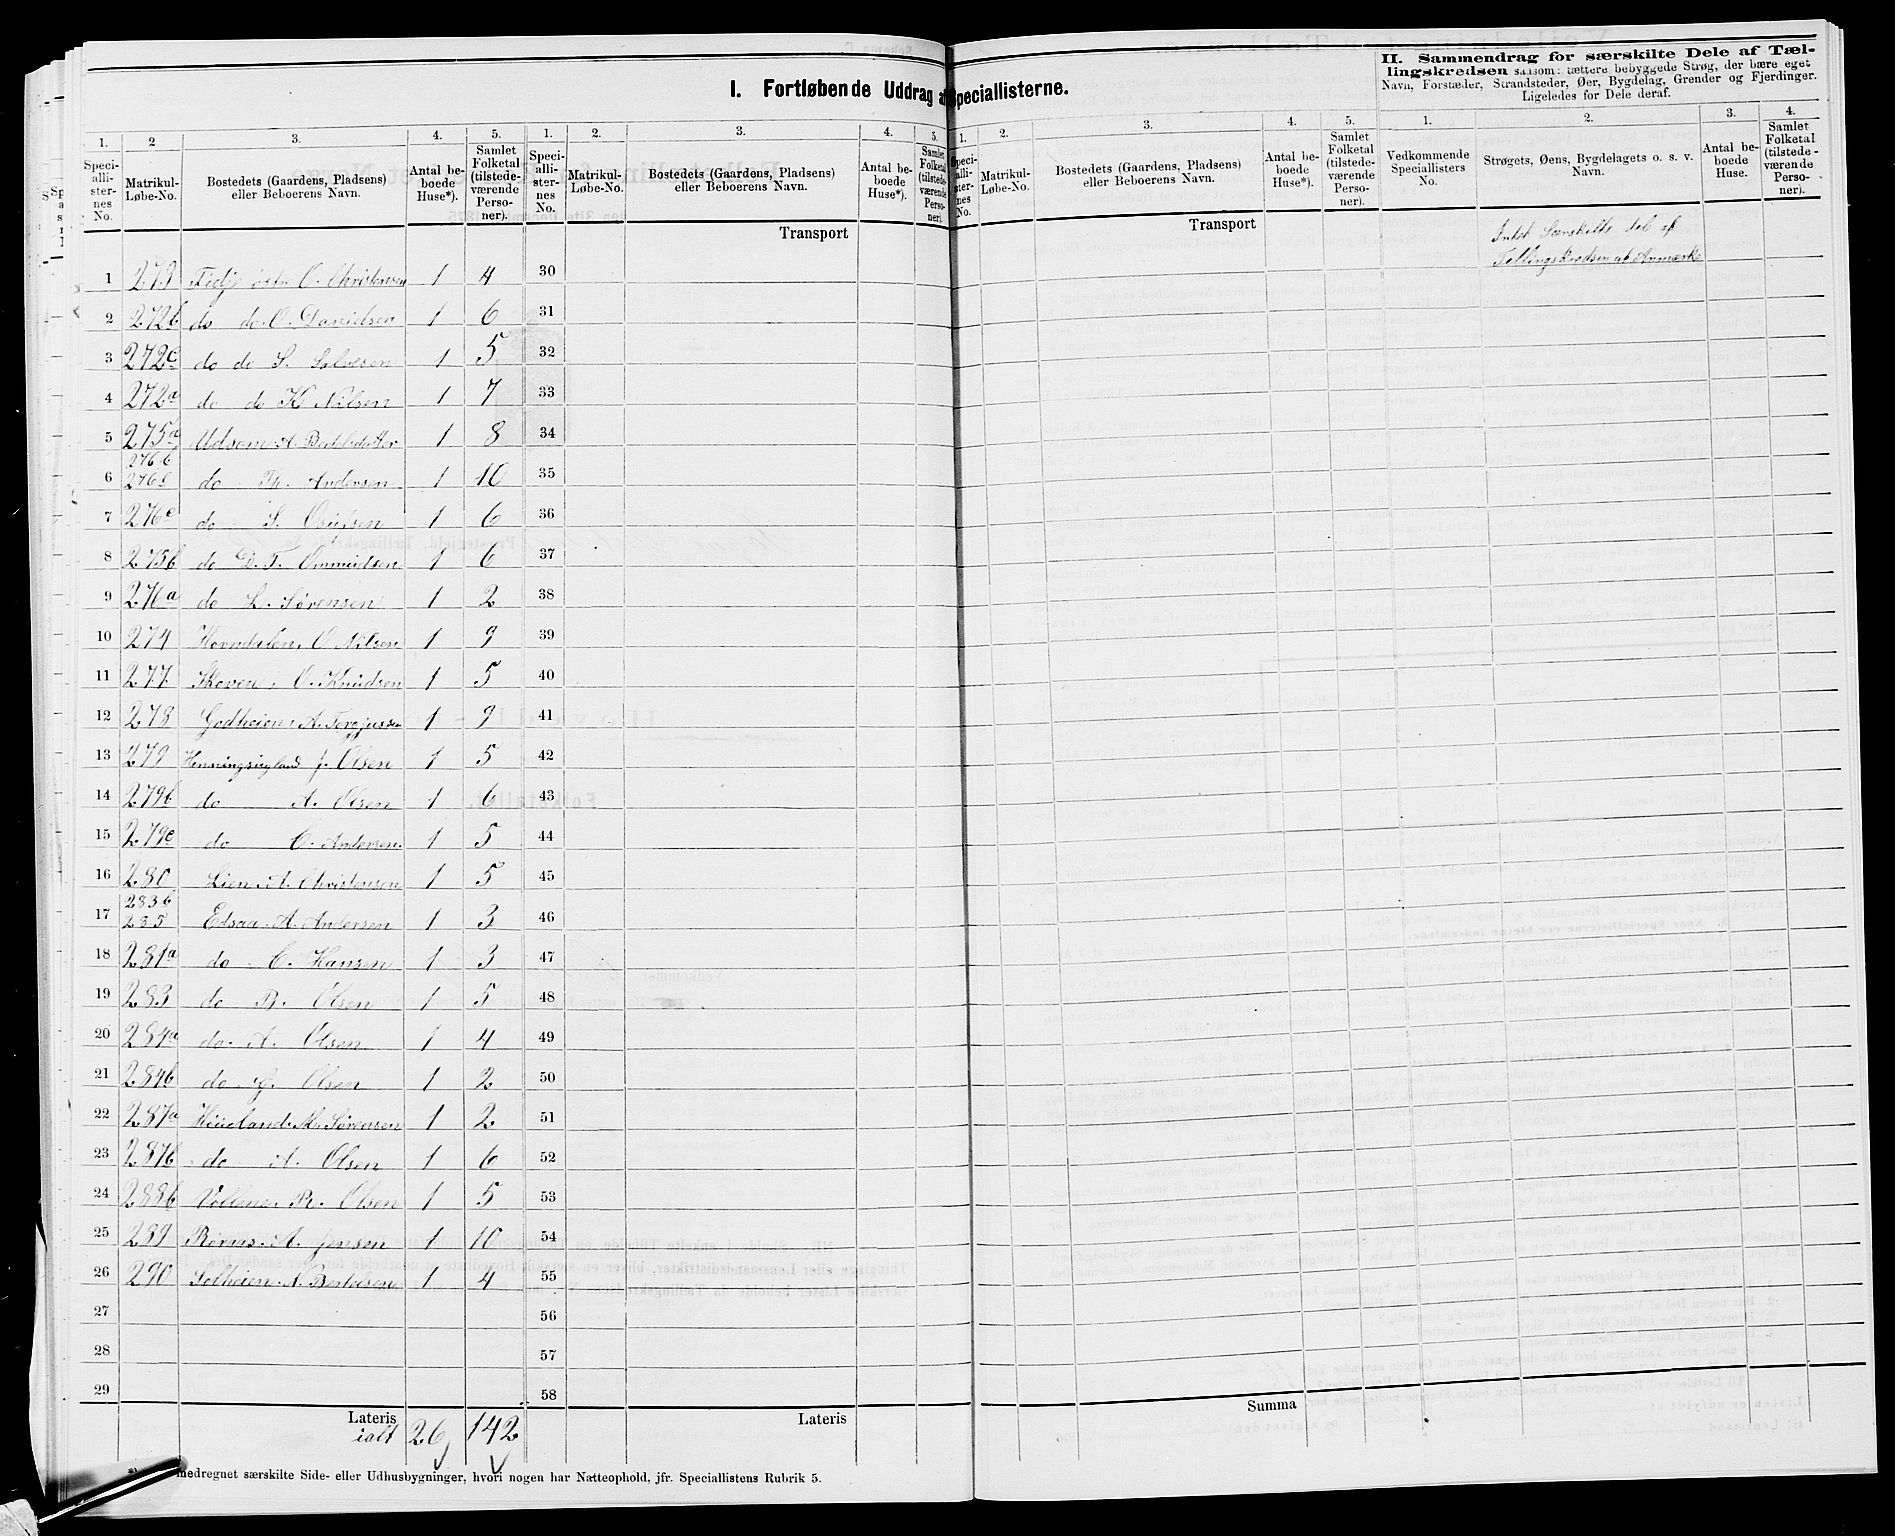 I. Fortløbende Uddrag af Speciallisterne.
II. Sammendrag for særskilte Dele af Tællingskredsen saasom: tættere bebyggede Strøg, der bære eget Navn, Forstæder, Strandsteder, Øer, Bygdelag, Grender og Fjerdinger. Ligeledes for Dele deraf.
1. 2 3. 4. 5. 1. 2. 3. 4. 5. 1. 2. 3. 4. 5. 1. 2. 3. 4.
Speciallisternes No. Matrikul-Løbe-No. Bostedets (Gaardens, Pladsens) eller Beboerens Navn. Antal beboede Huse*). Samlet Folketal (tilstedeværende Personer).
Speciallisternes No. Matrikul-Løbe-No. Bostedets (Gaardens, Pladsens) eller Beboerens Navn. Antal beboede Huse*). Samlet Folketal (tilstedeværende Personer).
Speciallisternes No. Matrikul-Løbe-No. Bostedets (Gaardens, Pladsens) eller Beboerens Navn. Antal beboede Huse*). Samlet Folketal (tilstedeværende Personer).
Vedkommende Speciallisters No. Strøgets, Øens, Bygdelagets o. s. v. Navn. Antal beboede Huse. Samlet Folketal (tilstedeværende Personer).
Transport Transport Intet Særskilte del af
Tellingskredsen at Anmærke
1 273 østr O. Christensen 1 4 30
2 272b do do O. Danielsen 1 6 31
3 272c do do S. Salvesen 1 5 32
4 272a do do K Nilsen 1 7 33
5 275a Udsom A. Bertelsdatter 1 8 34
276b
6 276d do Th. Andersen 1 10 35
7 276c do S. Osulsen 1 6 36
8 275b do D. T. Ommundsen 1 6 37
9 276a do L. Sørensen 1 2 38
10 274 Horndalen, O Nilsen 1 9 39
11 277 Skoven, O. Knudsen 1 5 40
12 278 Godheien, A. Tergjussen 1 9 41
13 279 Henningsugland J. Olsen 1 5 42
14 279b do A. Olsen 1 6 43
15 279c do C. Andersen. 1 5 44
16 280 Lien. A. Christensen 1 5 45
283b
17 285 Edsaa. A. Andersen 1 3 46
18 281a do C. Hansen 1 3 47
19 283 do R. Olsen 1 5 48
20 284a do. A. Olsen 1 4 49
21 284b do G. Olsen 1 2 50
22 287a M. Sørensen 1 2 51
23 287b do A. Olsen 1 6 52
24 288b Vollene. R. Olsen 1 5 53
25 289 A. Jensen 1 10 54
26 290 Solheien. A. Bertelsen 1 4 55
27 56
28 57
29 58
Lateris Lateris Summa
ialt 26 142
medregnet særskilte Side- eller Udhusbygninger, hvori nogen har Natteophold, jfr. Speciallistens Rubrik 5.